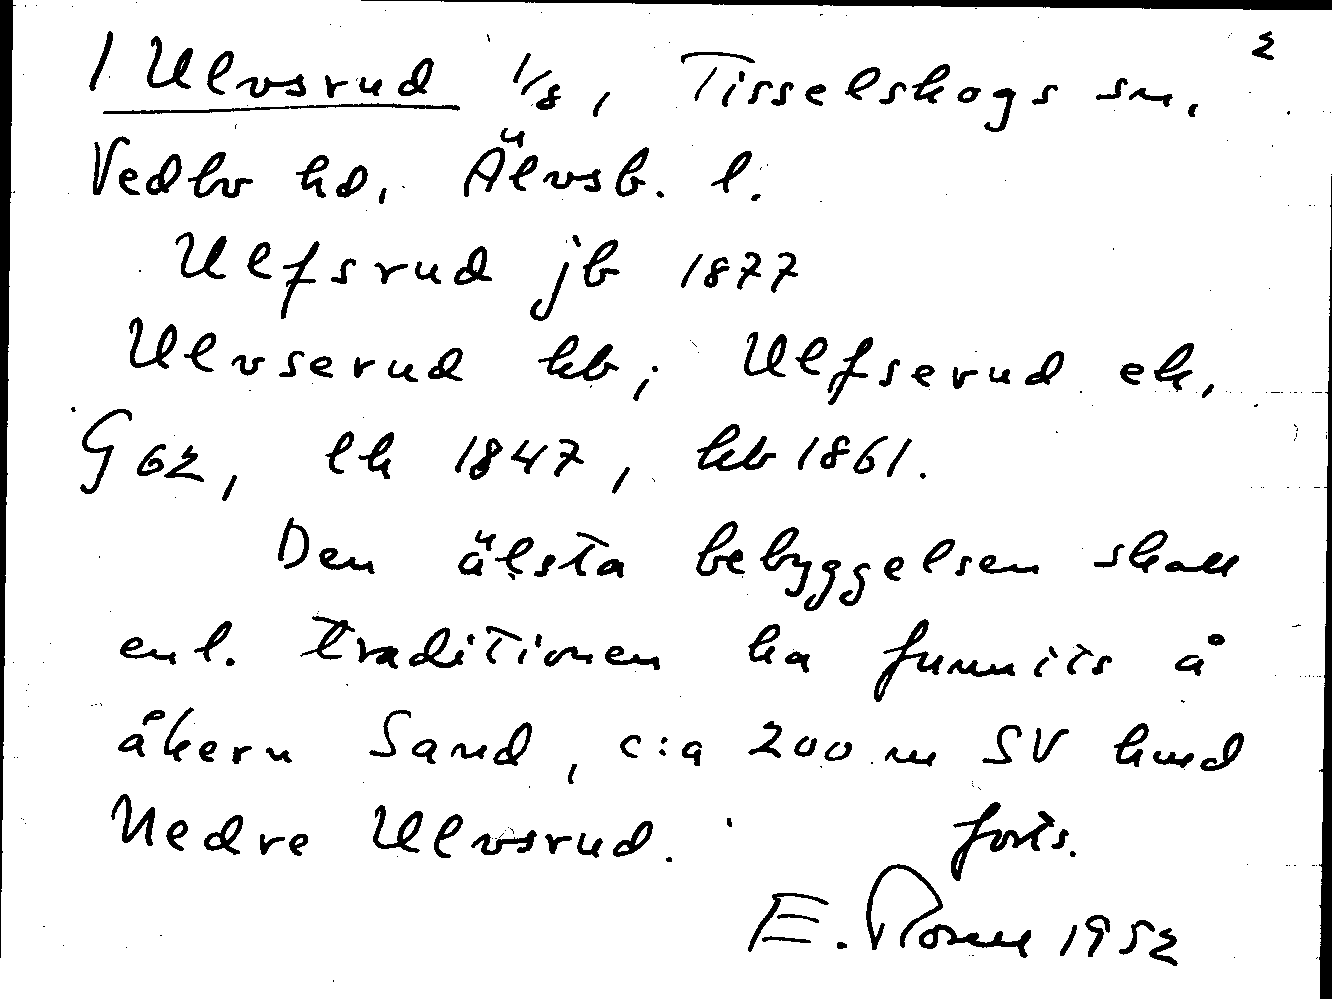 2
1 Ulvsrud 1/8, Tisselskogs sn.
Vedbo hd, Älvsb. l.
Ulfsrud jb 1877
Ulvserud kb; Ulfserud ek,
G 62, lk 1847, kb 1861.
Den älsta bebyggelsen skall
enl. traditionen ha funnits å
åkern Sand, c:a 200 m SV hmd
Nedre Ulvsrud. forts.
E. 1952